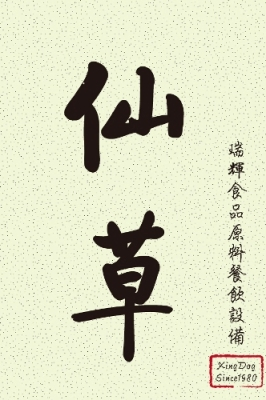 仙草
瑞輝食品原料餐飲設備
KingDag
Since1980